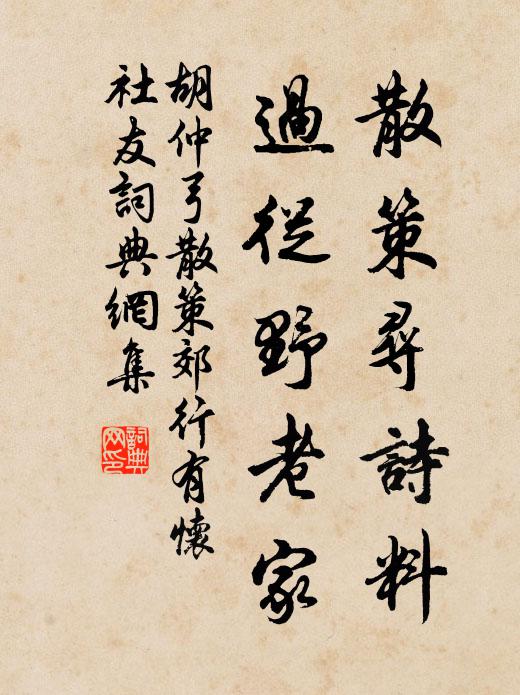 散策尋詩料
過從野老家
胡仲弓散策郊行有懷
社友詞典網集
詞典网印